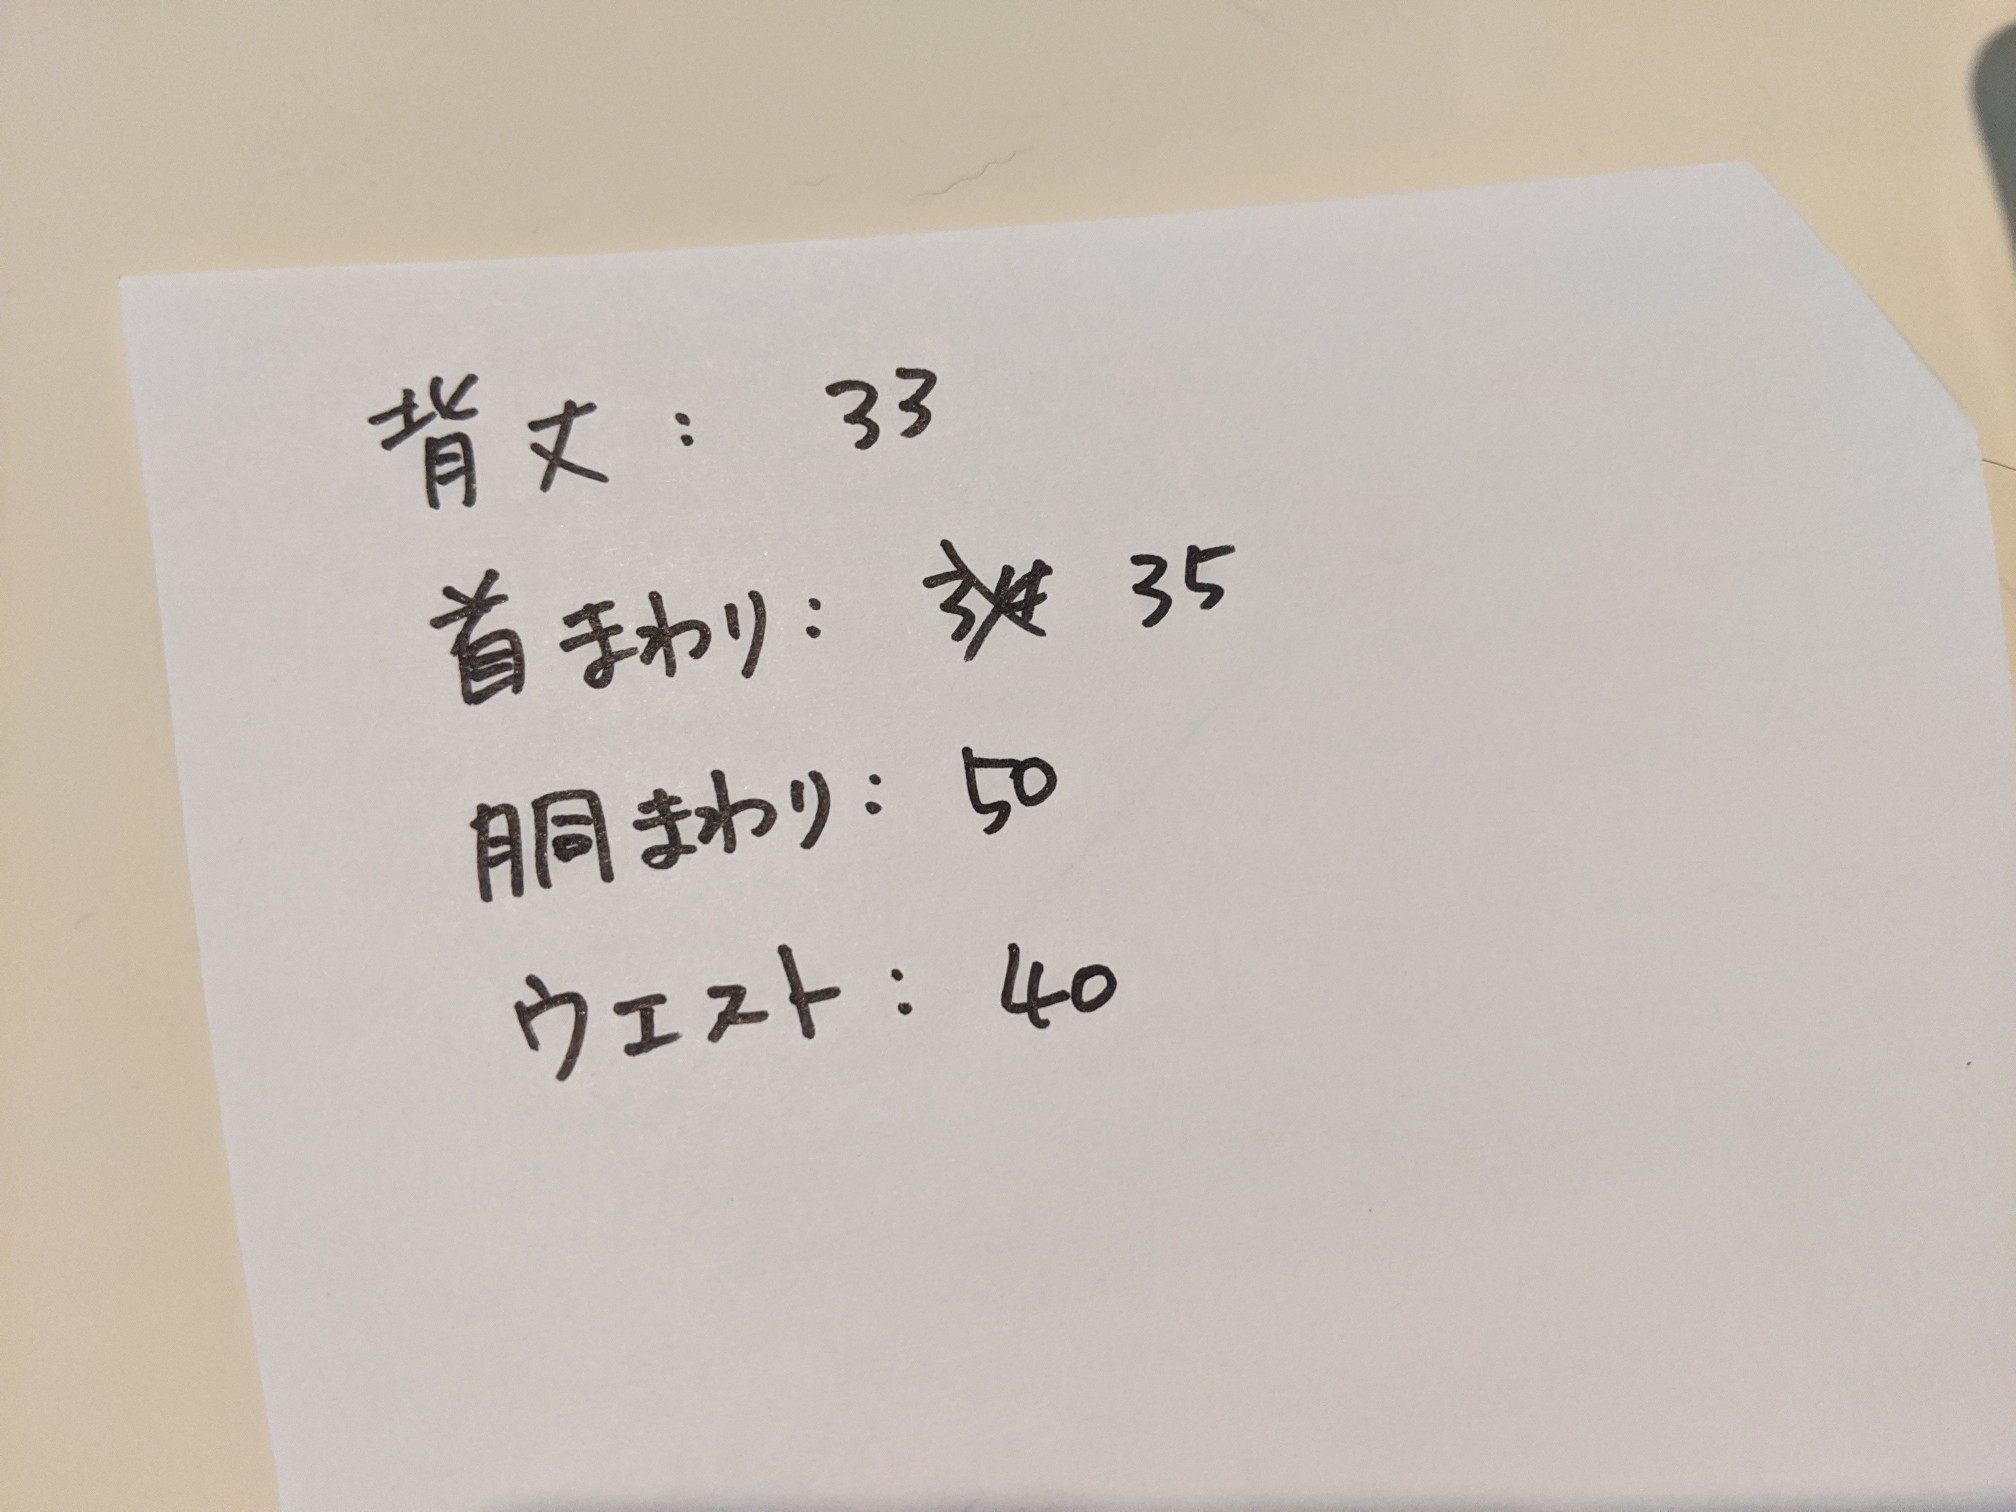 背丈： 33
首まわり： 35
胴まわり： 50
ウエスト： 40